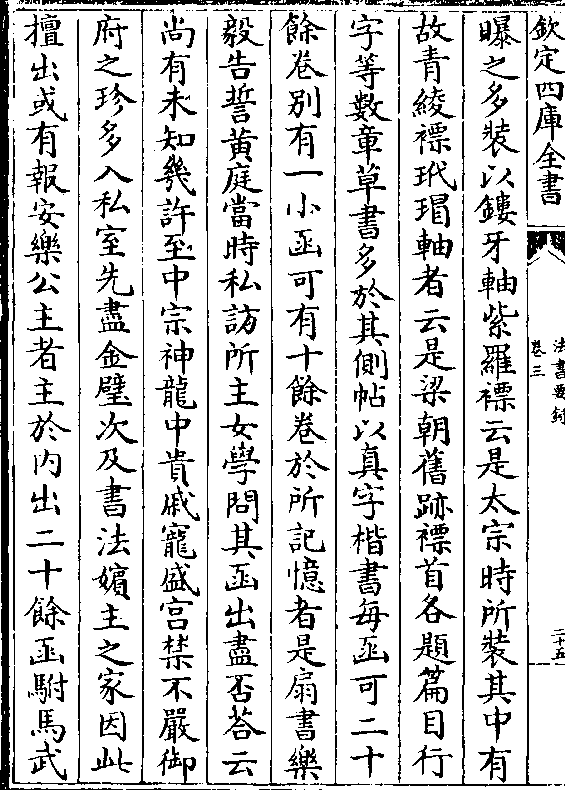 欽定四庫全書
法書要録
卷三
二十五
曝之多裝以鏤牙軸紫羅褾云是太宗時所裝其中有
故青綾褾玳瑁軸者云是梁朝舊跡褾首各題篇目行
字等數章草書多於其側帖以真字楷書每函可二十
餘卷別有一小函可有十餘卷於所記憶者是扇書樂
毅告誓黄庭當時私訪所主女學問其函出盡否荅云
尚有未知幾許至中宗神龍中貴戚寵盛宫禁不嚴御
府之珍多入私室先盡金璧次及書法嬪主之家因此
擅出或有報安樂公主者主於内出二十餘函駙馬武